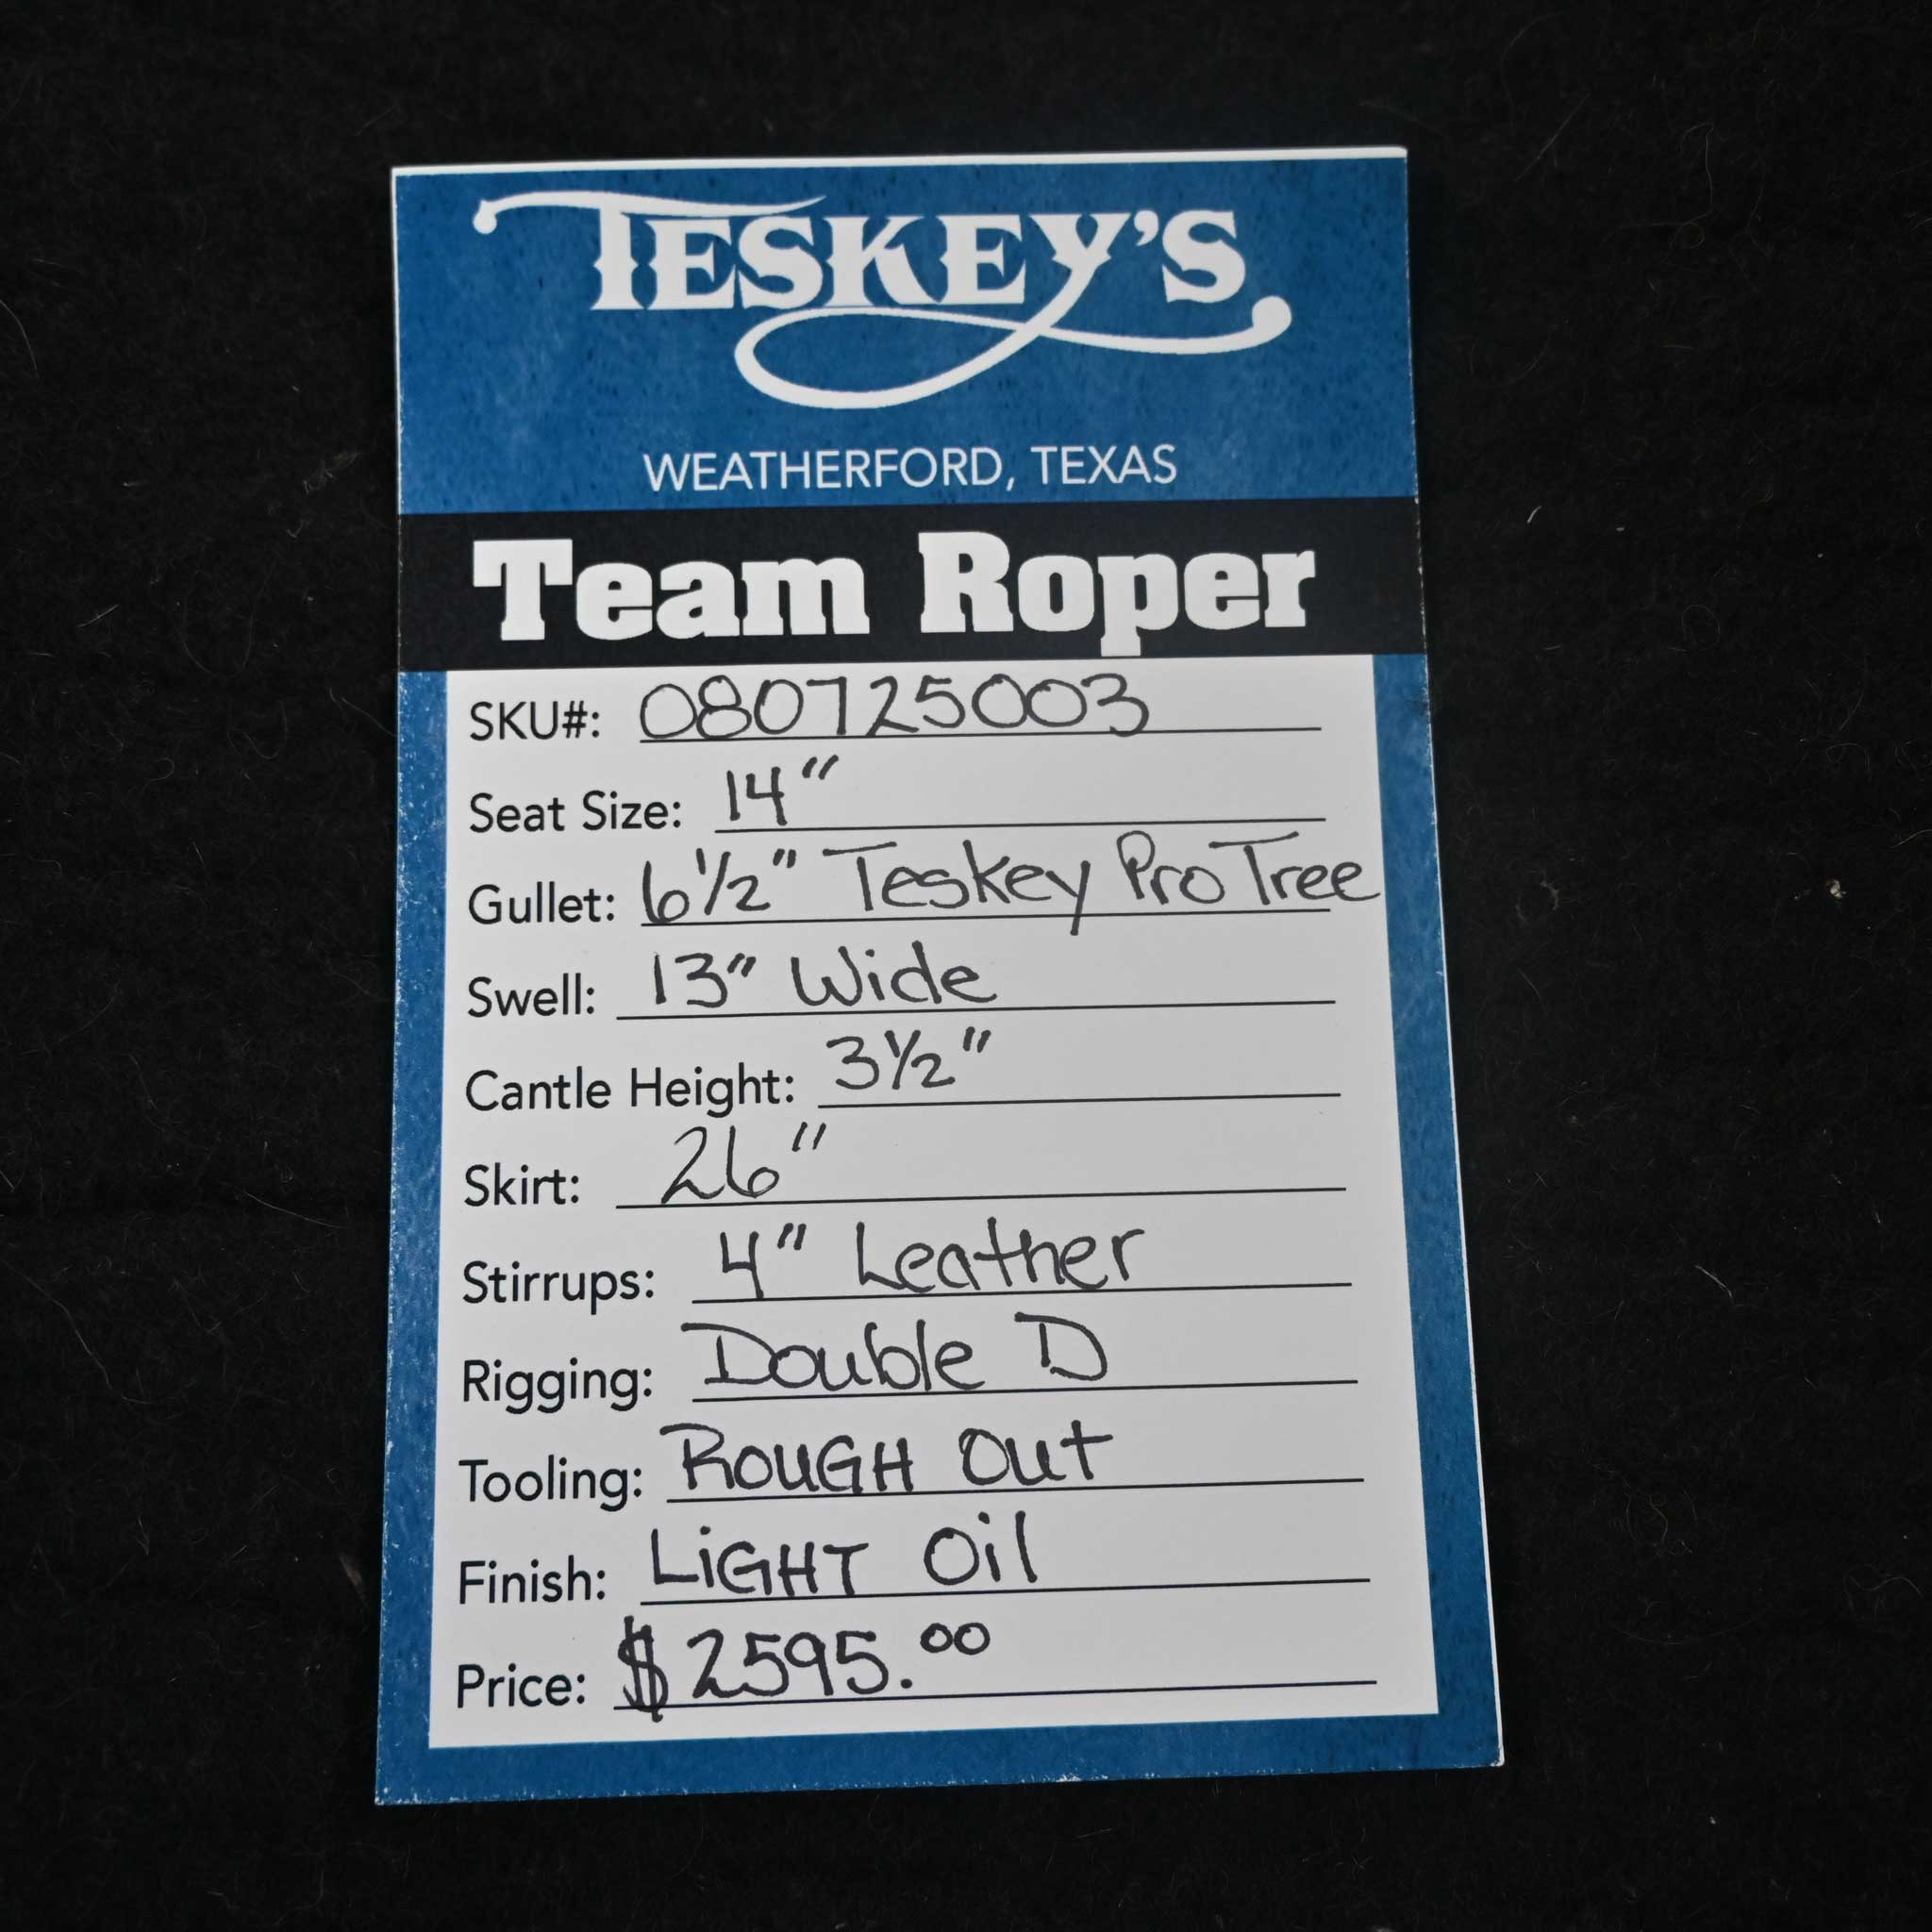 TESKEY'S
WEATHERFORD, TEXAS
Team Roper
SKU#: 080725003
Seat Size: 14"
Gullet: 6 1/2" Teskey Pro Tree
Swell: 13" Wide
Cantle Height: 3 1/2"
Skirt: 26"
Stirrups: 4" Leather
Rigging: Double D
Tooling: ROUGH Out
Finish: LiGHT Oil
Price: $2595.00